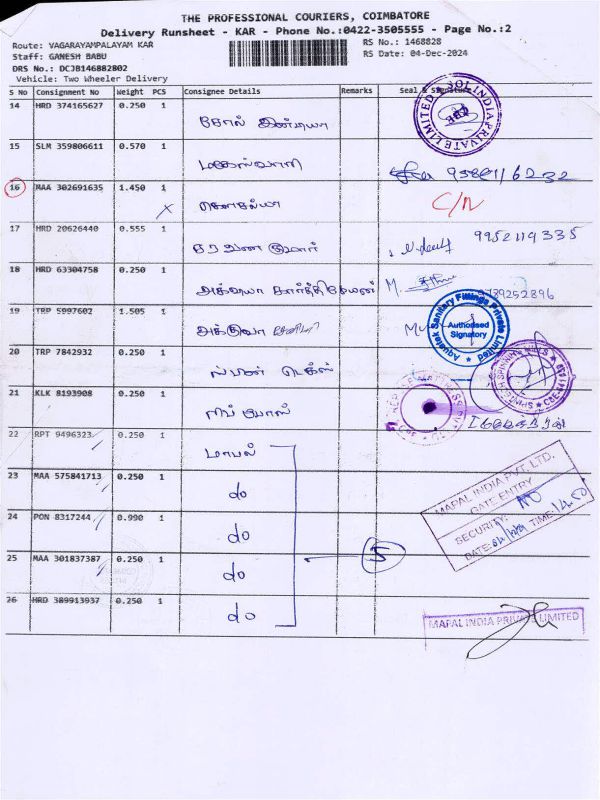 THE PROFESSIONAL COURIERS, COIMBATORE
Delivery Runsheet - KAR - Phone No.:0422-3505555 - Page No.:2
Route: VAGARAYAMPALAYAM KAR
RS No.: 1468828
Staff: GANESH BABU
RS Date: 04-Dec-2024
DRS No.: DCJB146882B02
Vehicle: Two Wheeler Delivery
S No Consignment No Weight PCS Consignee Details Remarks Seal & Signature
14 HRD 374165627 0.250 1
கோல் இன்டியா
JOL INDIA PRIVATE LIMITED
15 SLM 359806611 0.570 1
மகேஸ்வரி
16 MAA 302691635 1.450 1
C/N
17 HRD 20626440 0.555 1
சரவண குமார் 9952119335
18 HRD 63304758 0.250 1
அக்ஷயா கார்த்திகேயன் M.
19 TRP 5997602 1.505 1
Aquatek Sanitary Fittings Private Limited
Authorised Signatory
20 TRP 7842932 0.250 1
21 KLK 8193908 0.250 1
22 RPT 9496323 0.250 1
மாபல்
23 MAA 575841713 0.250 1
do
24 PON 8317244 0.990 1
do
25 MAA 301837387 0.250 1
do
5
26 HRD 389913937 0.250 1
do
MAPAL INDIA PVT. LTD.
GATE ENTRY
SECURITY:
DATE: TIME: 14.50
MAPAL INDIA PRIVATE LIMITED